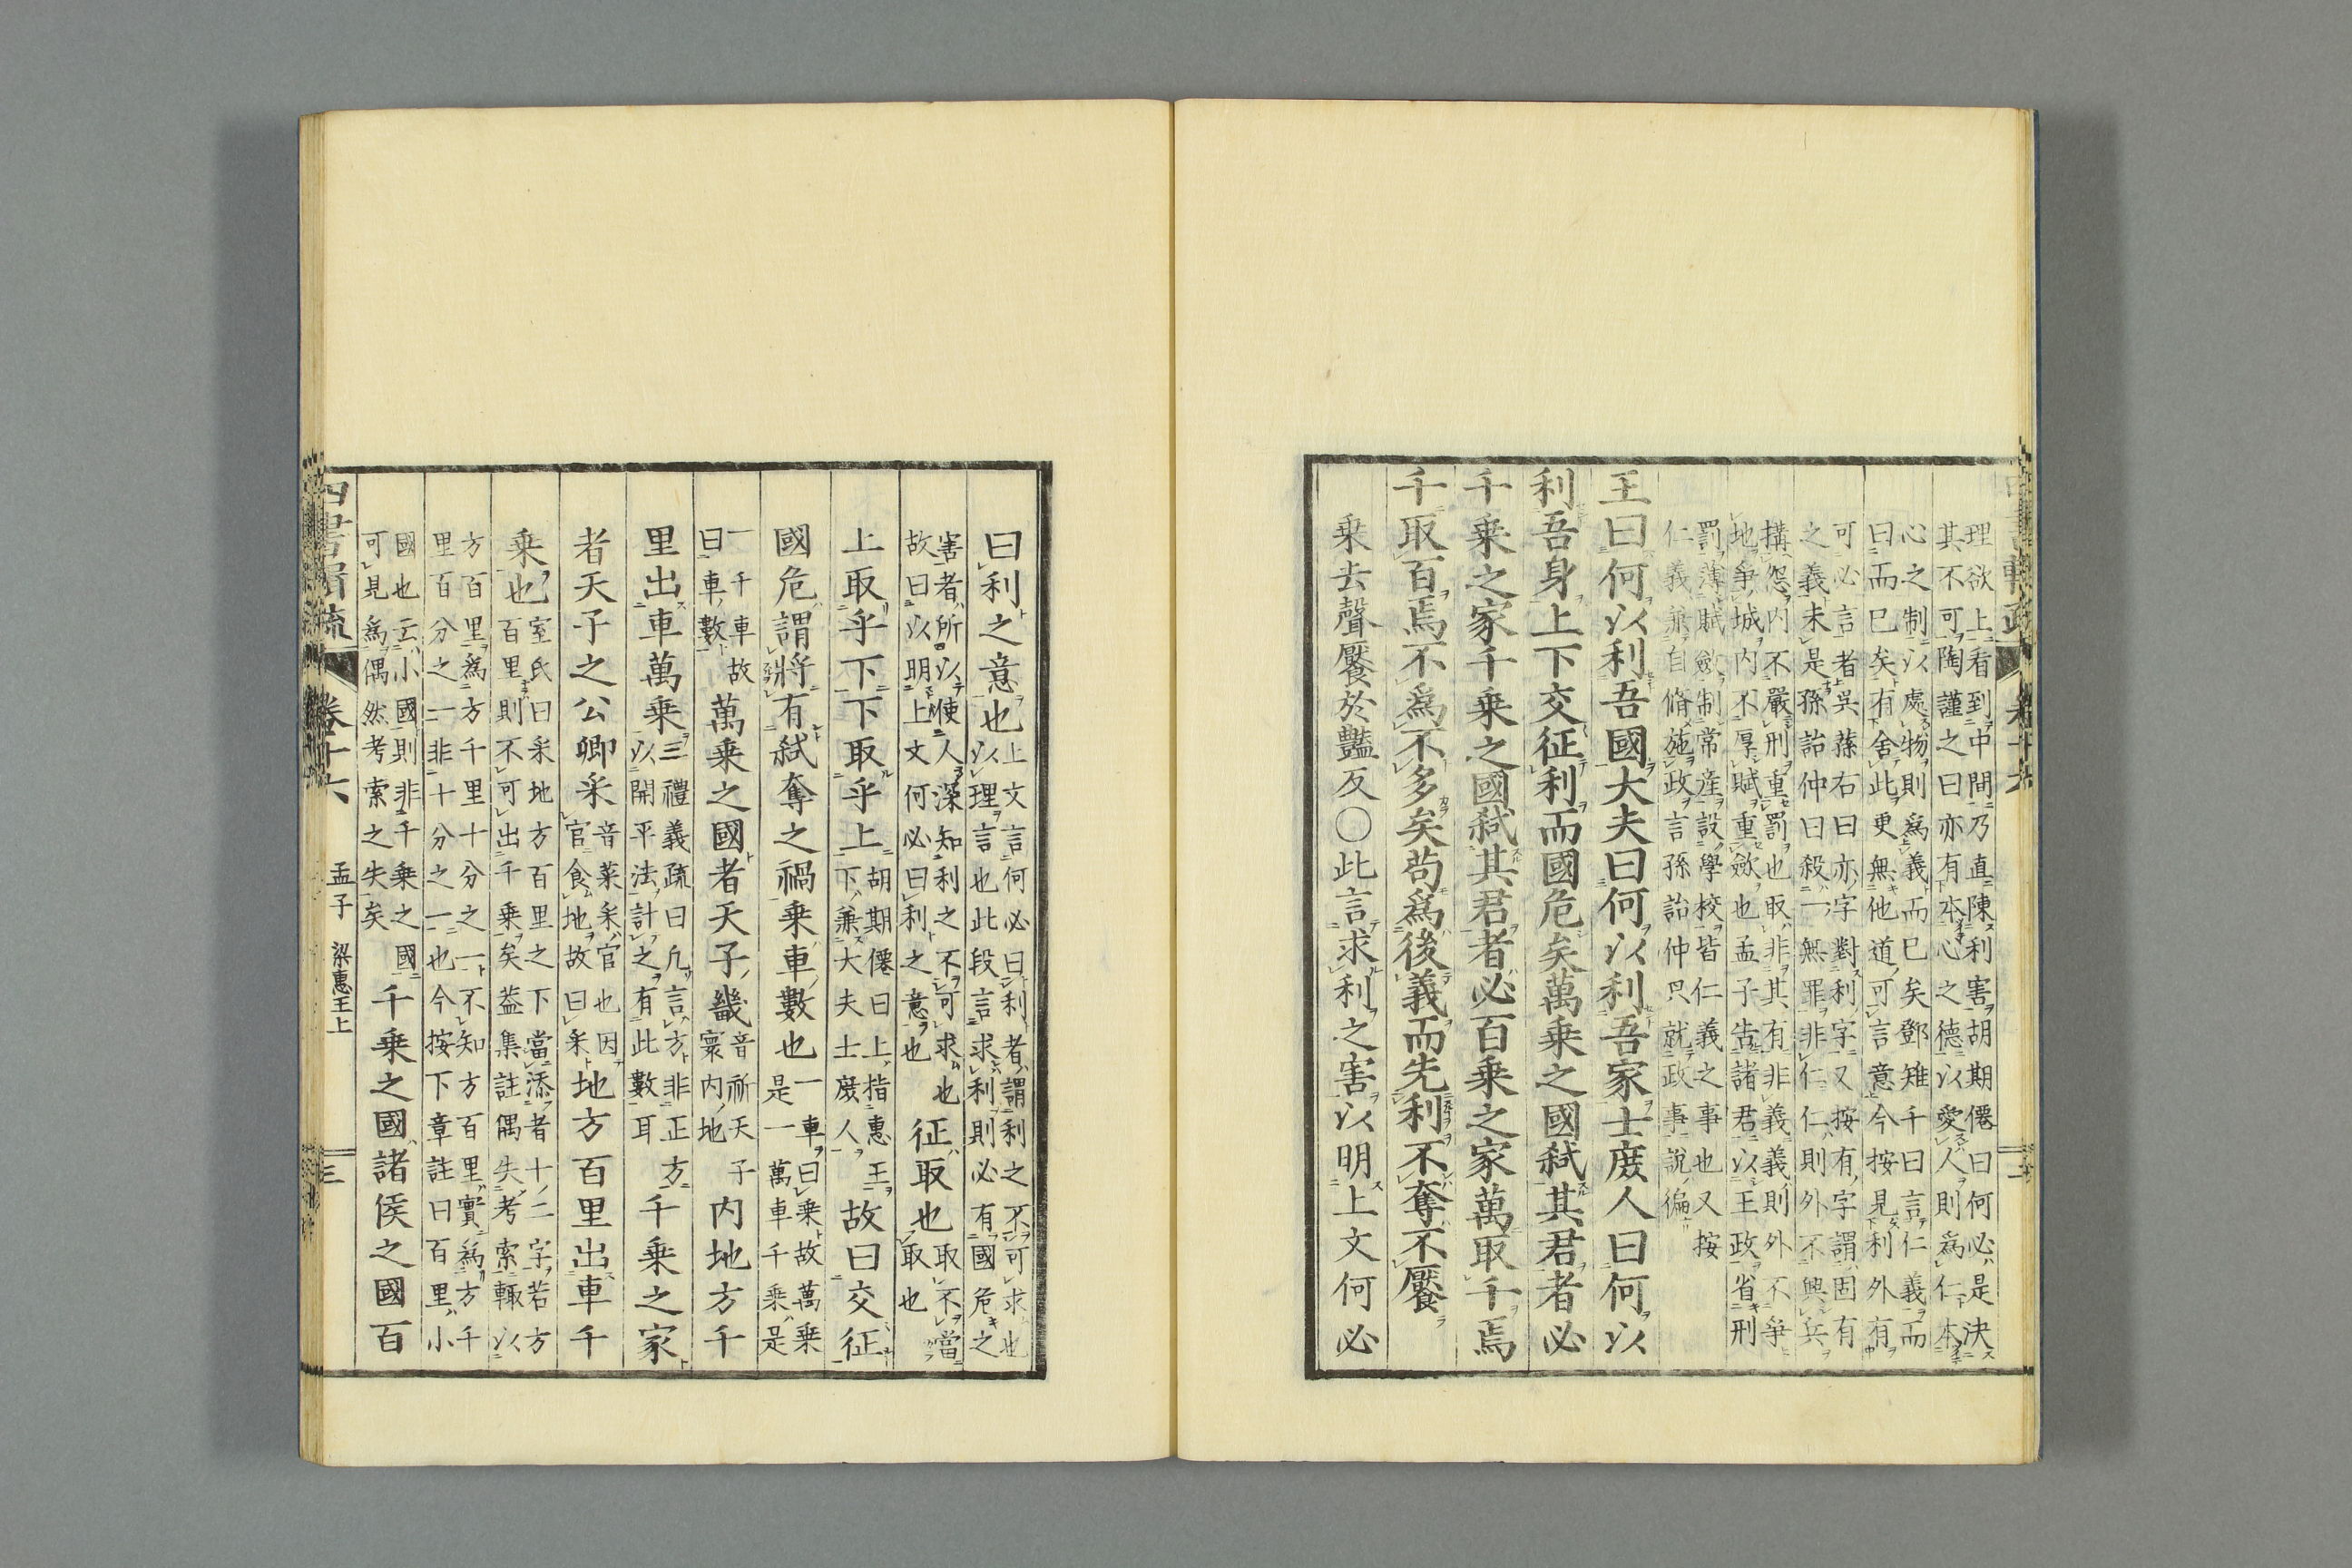 理欲上看到中間乃直陳利害胡期僊曰何必是決
其不可陶謹之曰亦有本心之德以愛人則為仁本
心之制以處物則為義而已矣鄧雉千曰言仁義而
曰而已矣有舍此更無他道可言意今按見利外有
可必言者吳蓀右曰亦字對利字又按有字謂固有
之義未是孫詒仲曰殺一無罪非仁仁則外不興兵
搆怨內不嚴刑重罰也取非其有非義義則外不爭
地爭城內不厚賦重斂也孟子告諸君以王政省刑
罰薄賦斂制常產設學校皆仁義之事也又按
仁義兼自脩施政言孫詒仲只就政事說偏
王曰何以利吾國大夫曰何以利吾家士庶人曰何以
利吾身上下交征利而國危矣萬乗之國弒其君者必
千乗之家千乗之國弒其君者必百乗之家萬取千焉
千取百焉不為不多矣苟為後義而先利不奪不饜
乗去聲饜於豔反〇此言求利之害以明上文何必
曰利之意也上文言何必曰利者謂利之不可求也
以理言也此段言求利則必有國危之
害者所以使人深知利之不可求也
故曰以明上文何必曰利之意也
征取也取不當
取也
上取乎下下取乎上胡期僊曰上指惠王
下兼大夫士庶人
故曰交征
國危謂將有弒奪之禍乗車數也一車曰乗故萬乗
是一萬車千乗是
一千車故
曰車數
萬乗之國者天子畿音祈天子
寰內地
內地方千
里出車萬乗三禮義疏曰凡言方非正方
以開平法計之有此數耳
千乗之家
者天子之公卿采音菜采官也因
官食地故曰采
地方百里出車千
乗也室氏曰采地方百里之下當添者十二字若方
百里則不可出千乗矣蓋集註偶失考索輙以
方百里為方千里十分之一不知方百里實為方千
里百分之一非十分之一也今按下章註曰百里小
國也云小國則非千乗之國
可見為偶然考索之失矣
千乗之國諸侯之國百
四書輯疏 卷十六 孟子 梁惠王上 三